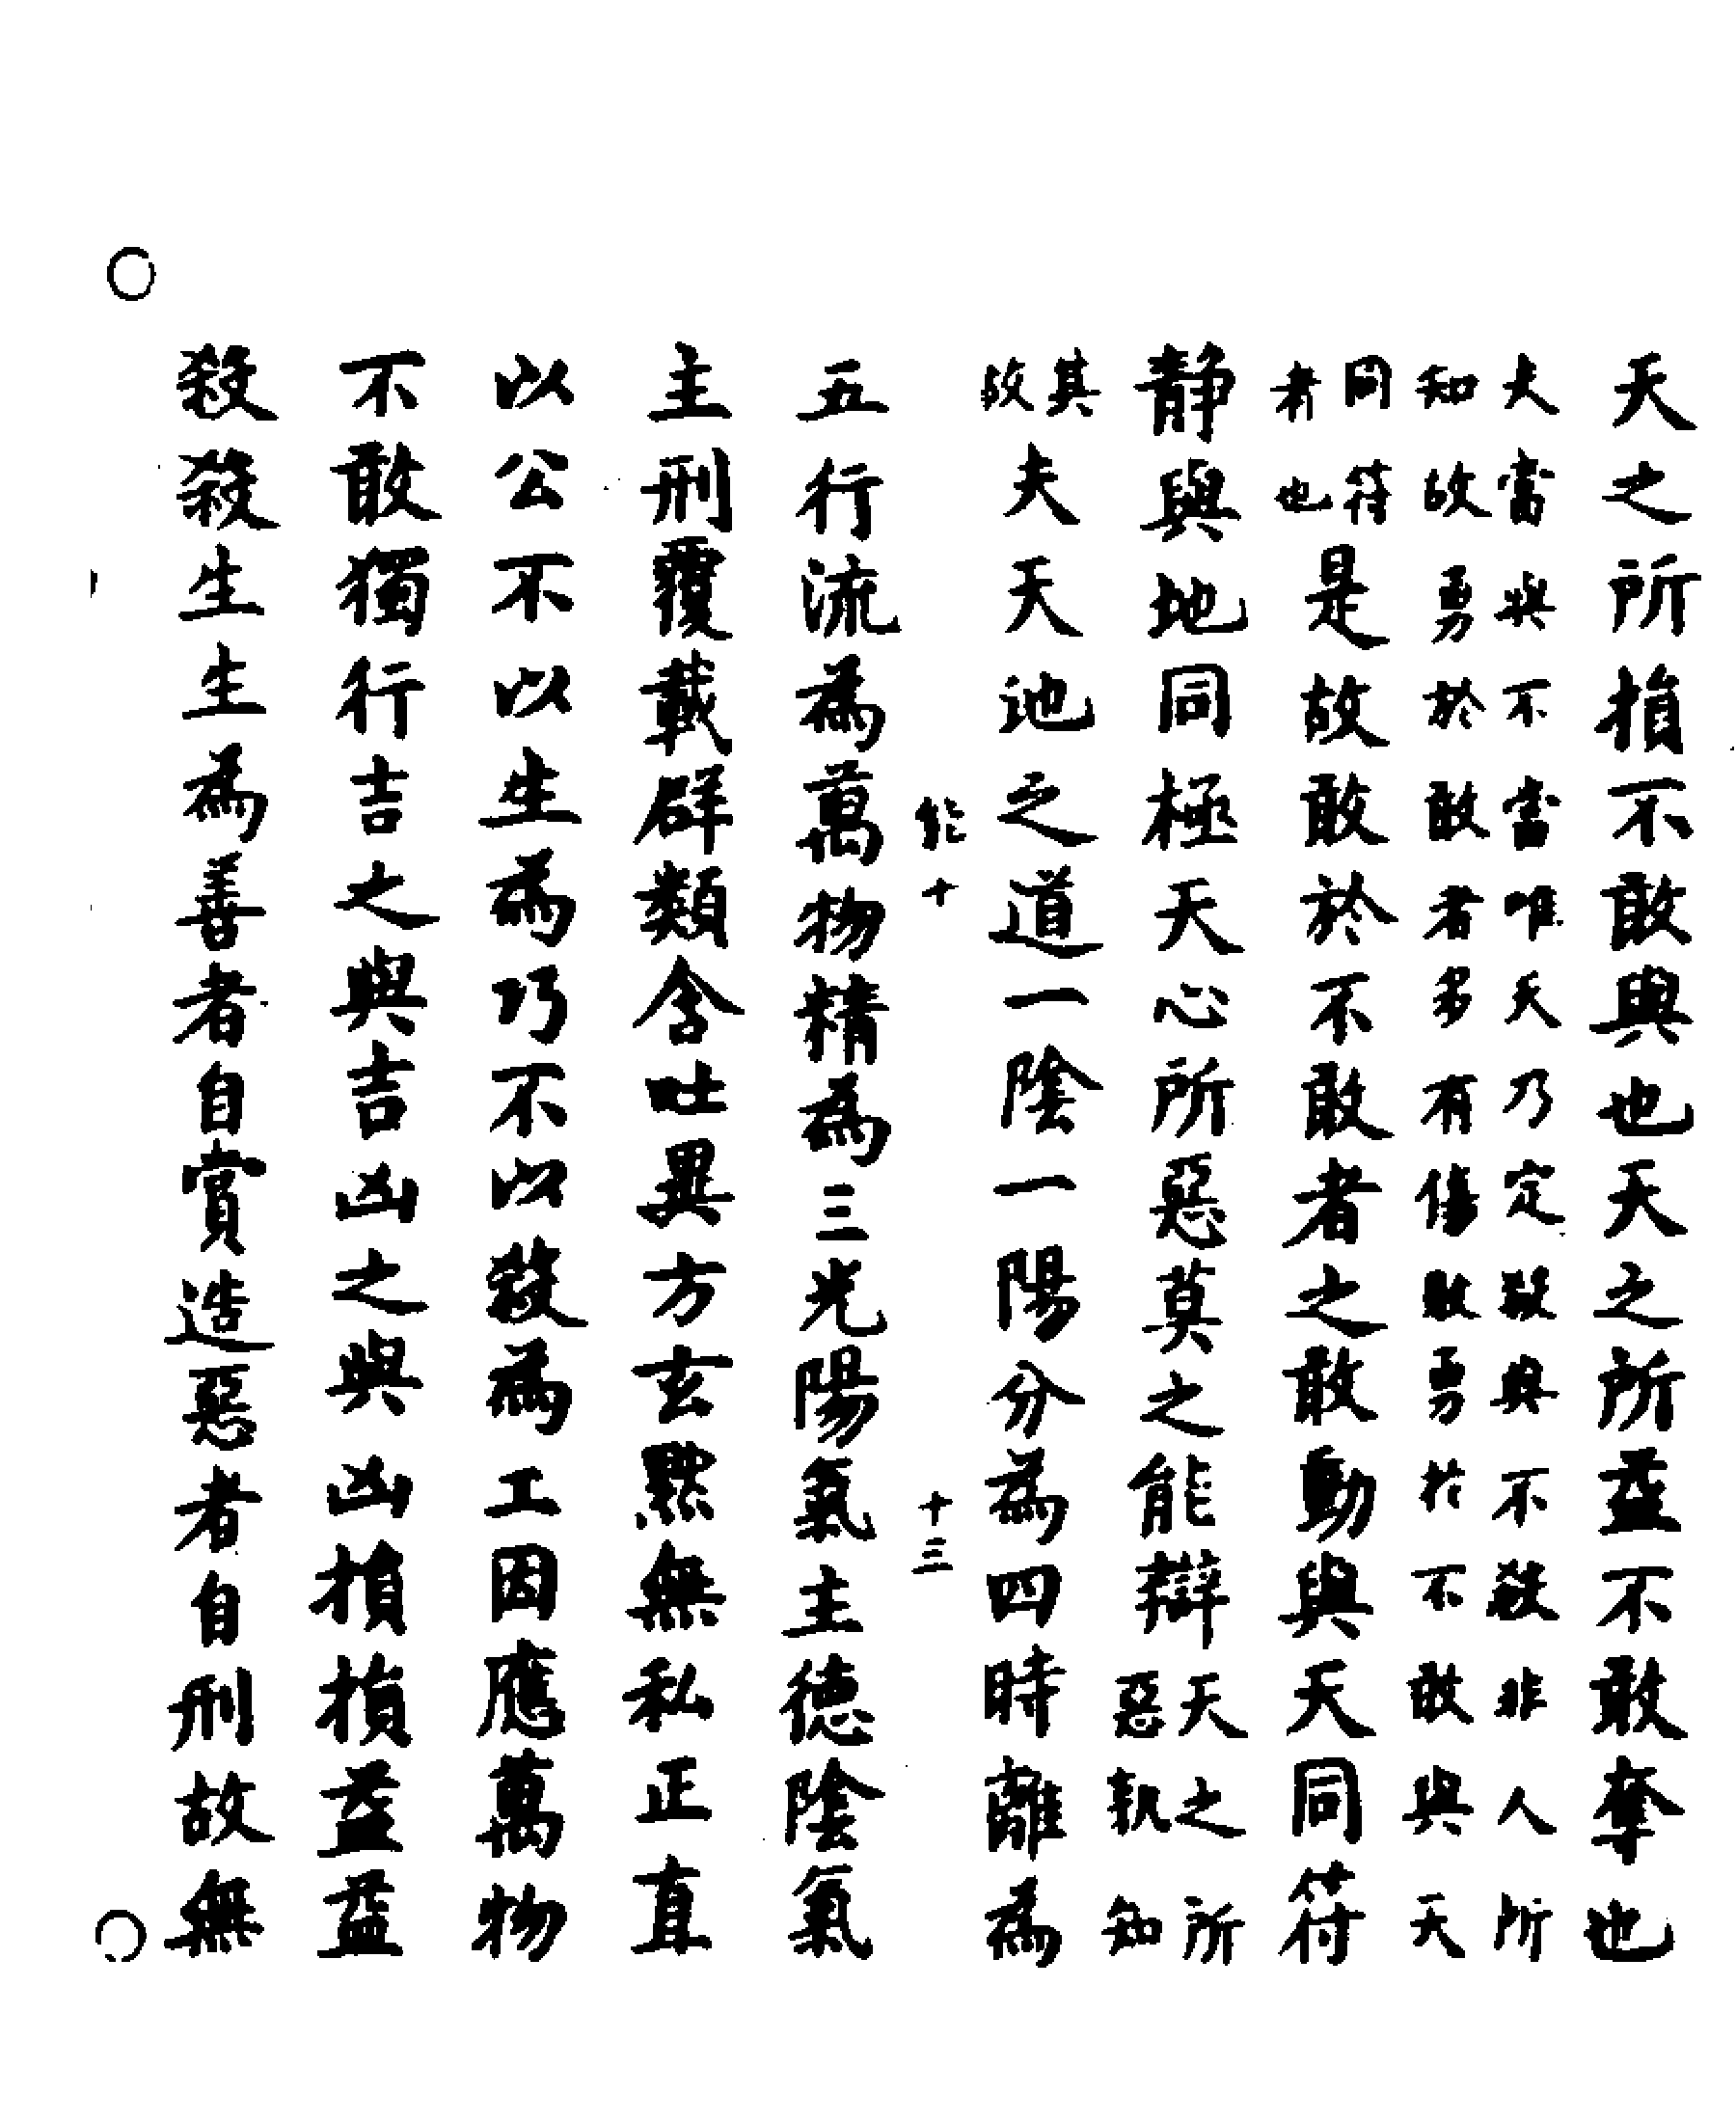 天之所損不敢與也天之所益不敢奪也
夫當與不當唯天乃定敬與不殺非人所
知故勇於敢者多有傷敗勇於不敢與天
同符
者也
是故敢於不敢者之敢動與天同符
静與地同極天心所惡莫之能辯
天之所
惡孰知
其
故
夫天地之道一陰一陽分為四時離為
能十 十三
五行流為萬物精為三光陽氣主德陰氣
主刑覆載群類含吐異方玄黙無私正直
以公不以生為巧不以殺為工因應萬物
不敢獨行吉之與吉凶之與凶損損益益
殺殺生生為善者自賞造惡者自刑故無